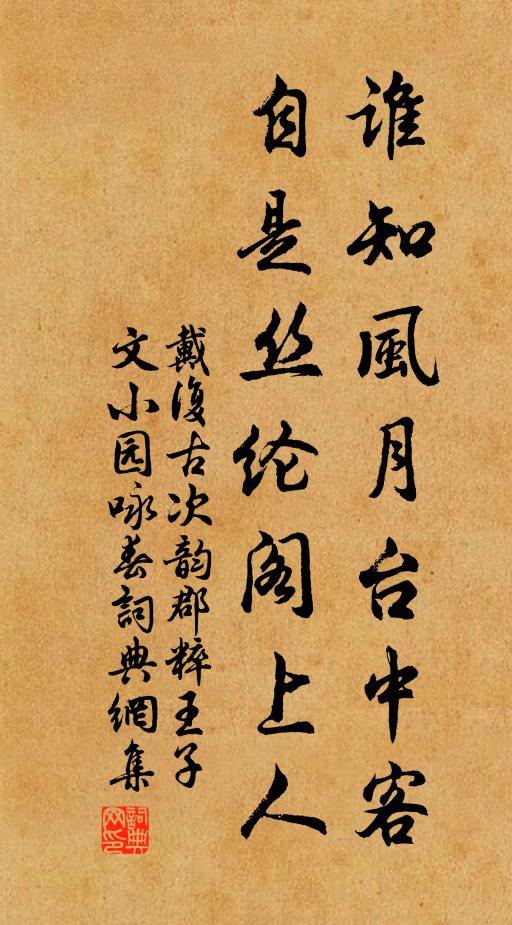 谁知風月台中客
自是丝纶阁上人
戴復古次韵郡粹王子
文小园咏春詞典網集
詞典网印